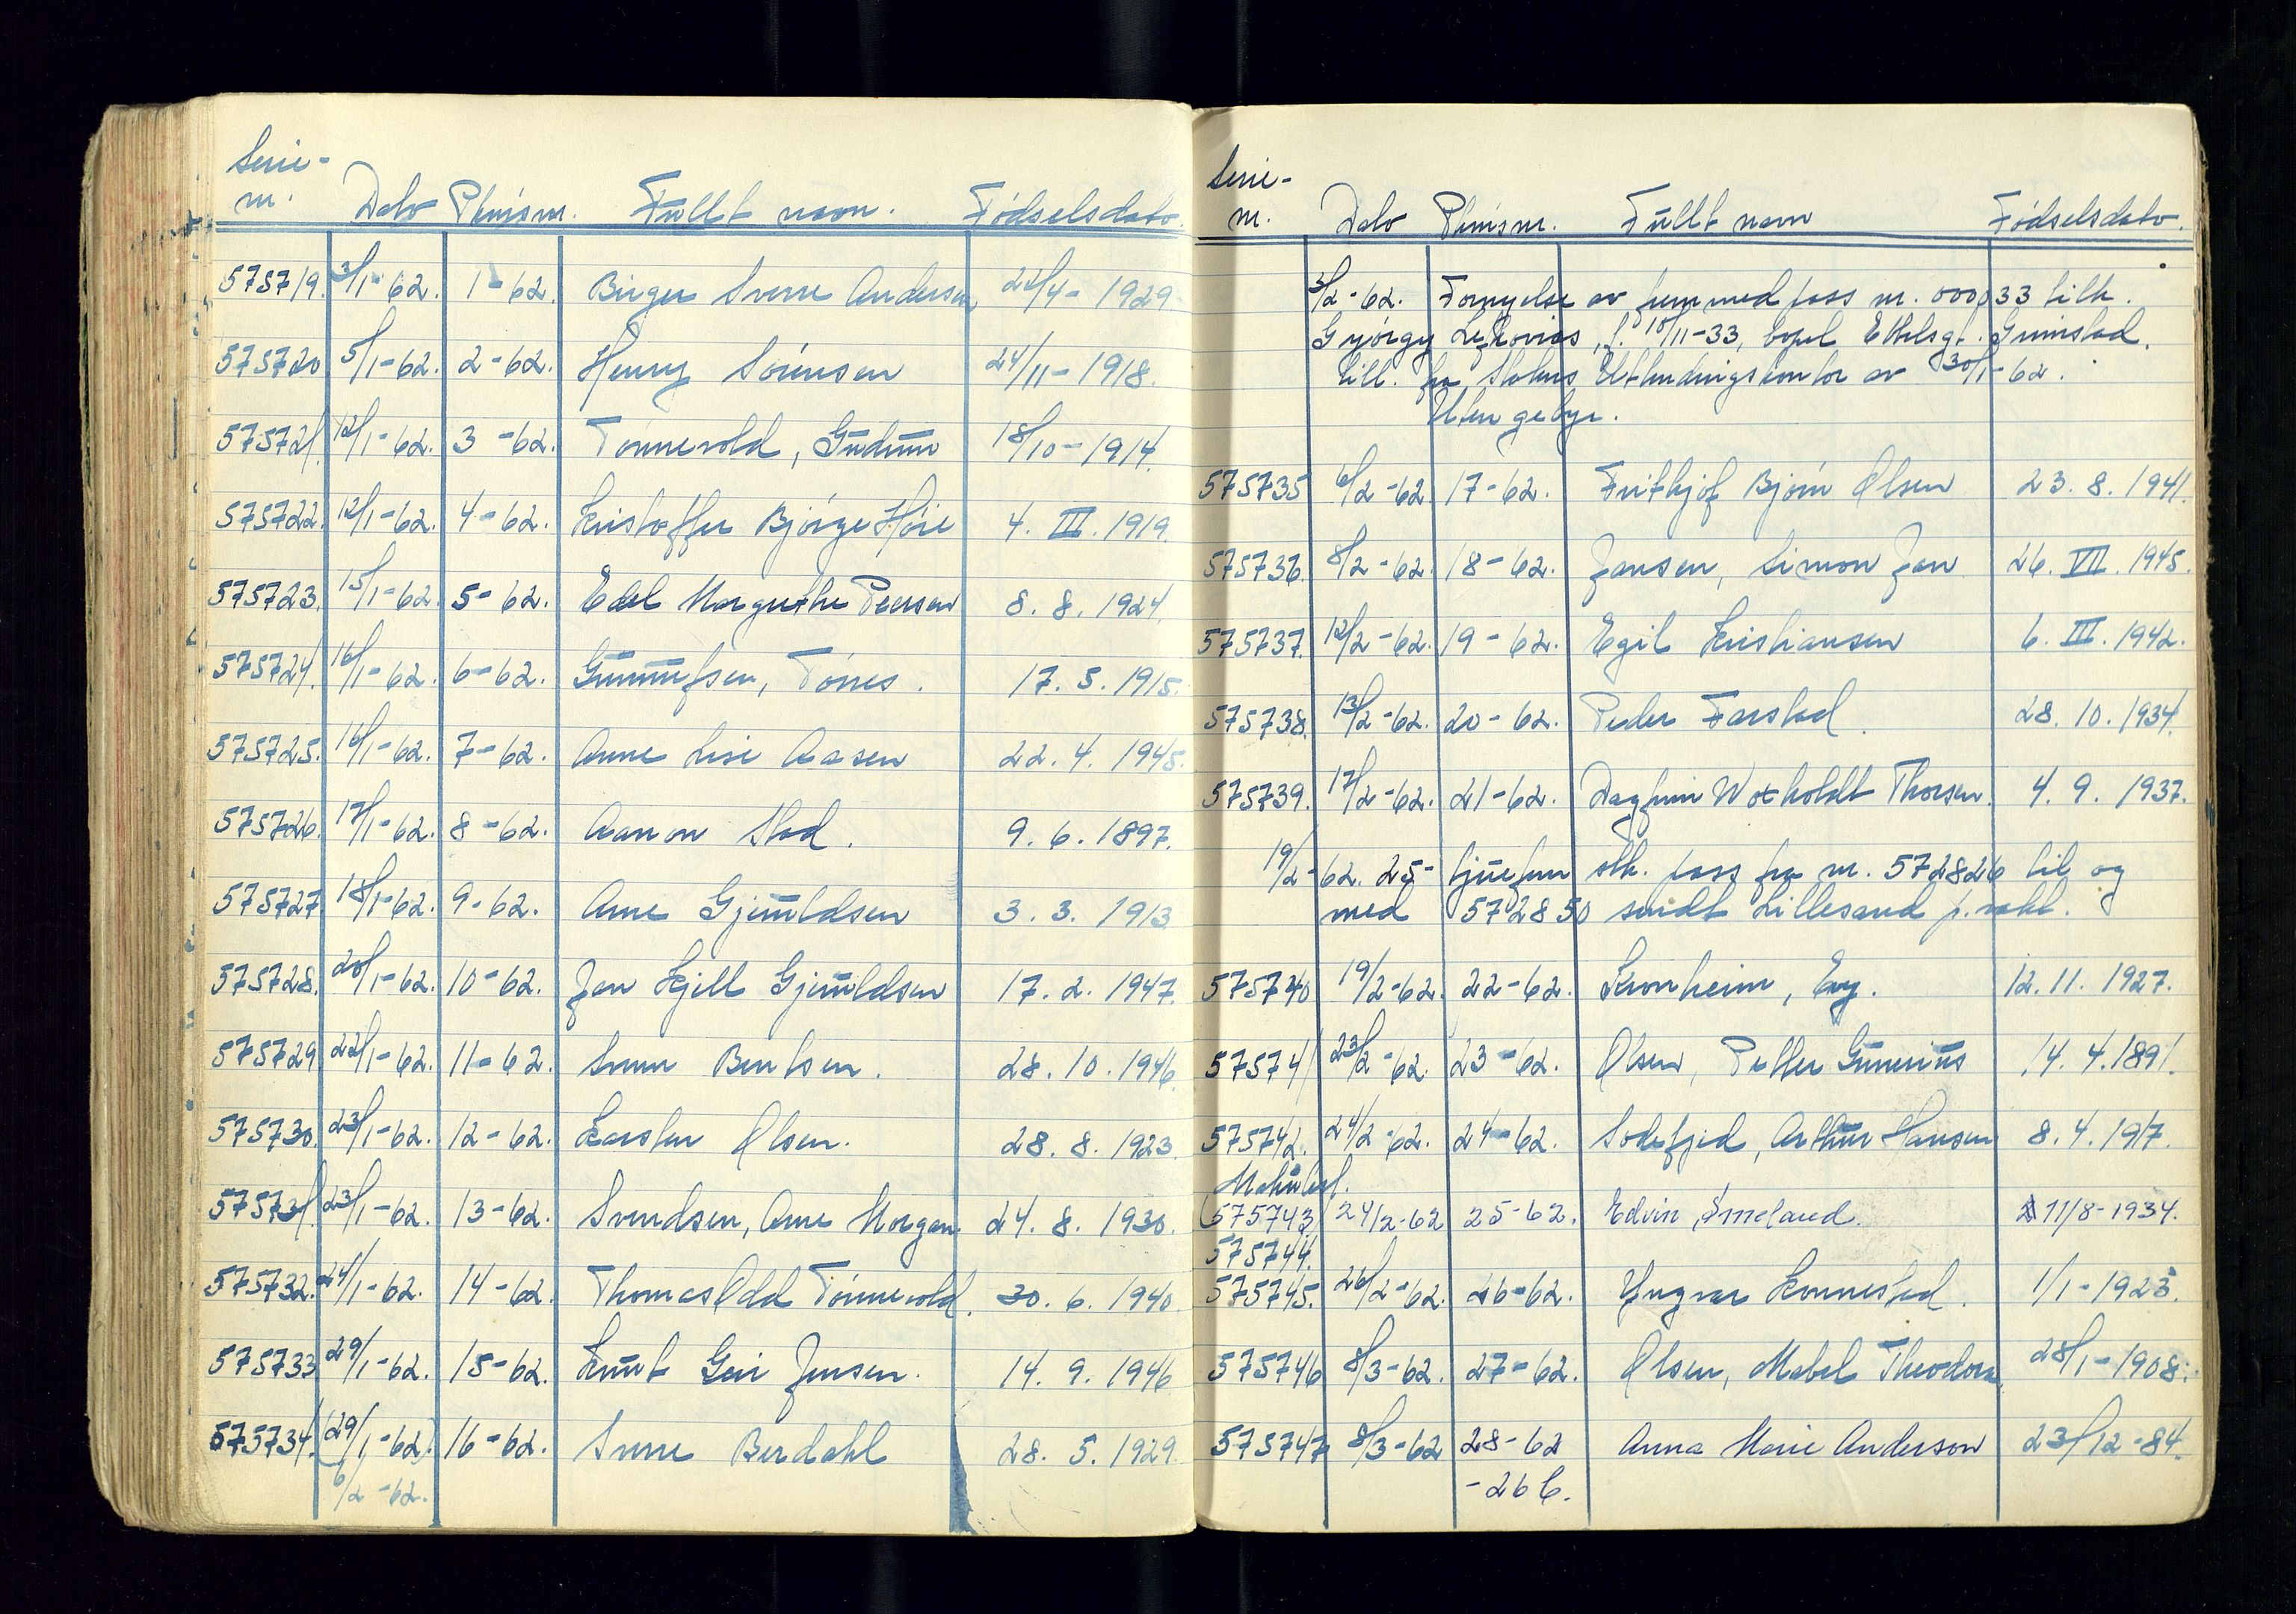 Serie-
nr. Dato Pliksnr. Fullt navn. Fødselsdato.
575719. 3/1-62. 1-62. Birger Sverre Andersen 22/4-1929.
575720 5/1-62. 2-62. Henry Sørensen 24/11-1918.
575721. 12/1-62. 3-62. Tønnevold, Gudrun 18/10-1914.
575722. 12/1-62. 4-62. Kristoffer Bjørge Høie 4. III. 1919.
575723. 15/1-62. 5-62. Edel Margrethe Peersen 8. 8. 1924.
575724. 16/1-62. 6-62. Gunnufsen, Tønnes. 17. 5. 1915.
575725. 16/1-62. 7-62. Anne Lise Aasen 22. 4. 1945.
575726. 17/1-62. 8-62. Aanon Stad. 9. 6. 1897.
575727 18/1-62. 9-62. Arne Gjeruldsen 3. 3. 1913
575728. 20/1-62. 10-62. Jan Kjell Gjeruldsen 17. 2. 1947.
575729 22/1-62. 11-62. Svenn Bentsen. 28. 10. 1946.
575730. 23/1-62. 12-62. Karsten Olsen. 28. 8. 1923.
575731. 23/1-62. 13-62. Svendsen, Arne Morgan 24. 8. 1930.
575732. 24/1-62. 14-62. Thomas Odd Tønnevold. 30. 6. 1940.
575733 29/1-62. 15-62. Knut Geir Jensen. 14. 9. 1946
575734. (29/1-62). 16-62. Sverre Berdahl 28. 5. 1929.
6/2-62.
Serie-
nr. Dato Pliksnr. Fullt navn Fødselsdato.
3/2-62. Fornyelse av fremmedpass nr. 000033 tilh.
György Lefkovics, f. 10/11-33, bopel Grimstad.
till. fra Statens Utlendingskontor av 30/1-62.
Uten gebyr.
575735 6/2-62. 17-62. Frithjof Bjørn Olsen 23. 8. 1941.
575736. 8/2-62. 18-62. Jansen, Simon Jan 26. VII. 1945.
575737. 12/2-62. 19-62. Egil Kristiansen 6. III. 1942.
575738. 13/2-62. 20-62. Peder Farstad. 28. 10. 1934.
575739. 17/2-62. 21-62. Dagfinn Woxholdt Thorsen. 4. 9. 1937.
19/2-62. 25- tjuefem stk. pass fra nr. 572826 til og
med 572850 sendt Lillesand p.vakt.
575740 19/2-62. 22-62. Kronheim, Evy. 12. 11. 1927.
575741 23/2-62. 23-62. Olsen, Petter Gunerius 14. 4. 1891.
575742. 24/2-62. 24-62. Sodefjed, Arthur Hansen 8. 4. 1917.
Makulert.
(575743. 24/2-62 25-62. Edvin Smeland. 11/8-1934.
575744.
575745. 26/2-62. 26-62. Yngvar Konnestad. 1/1-1923.
575746 8/3-62. 27-62. Olsen, Mabel Theodora. 28/1-1908.
575747 8/3-62 28-62 Anna Marie Anderson 23/12-84.
-266.